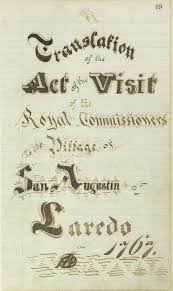 69
Translation
of the
Act of the Visit
of the
Royal Commissioners
to the Village of
San Augustin
of
Laredo
1767.